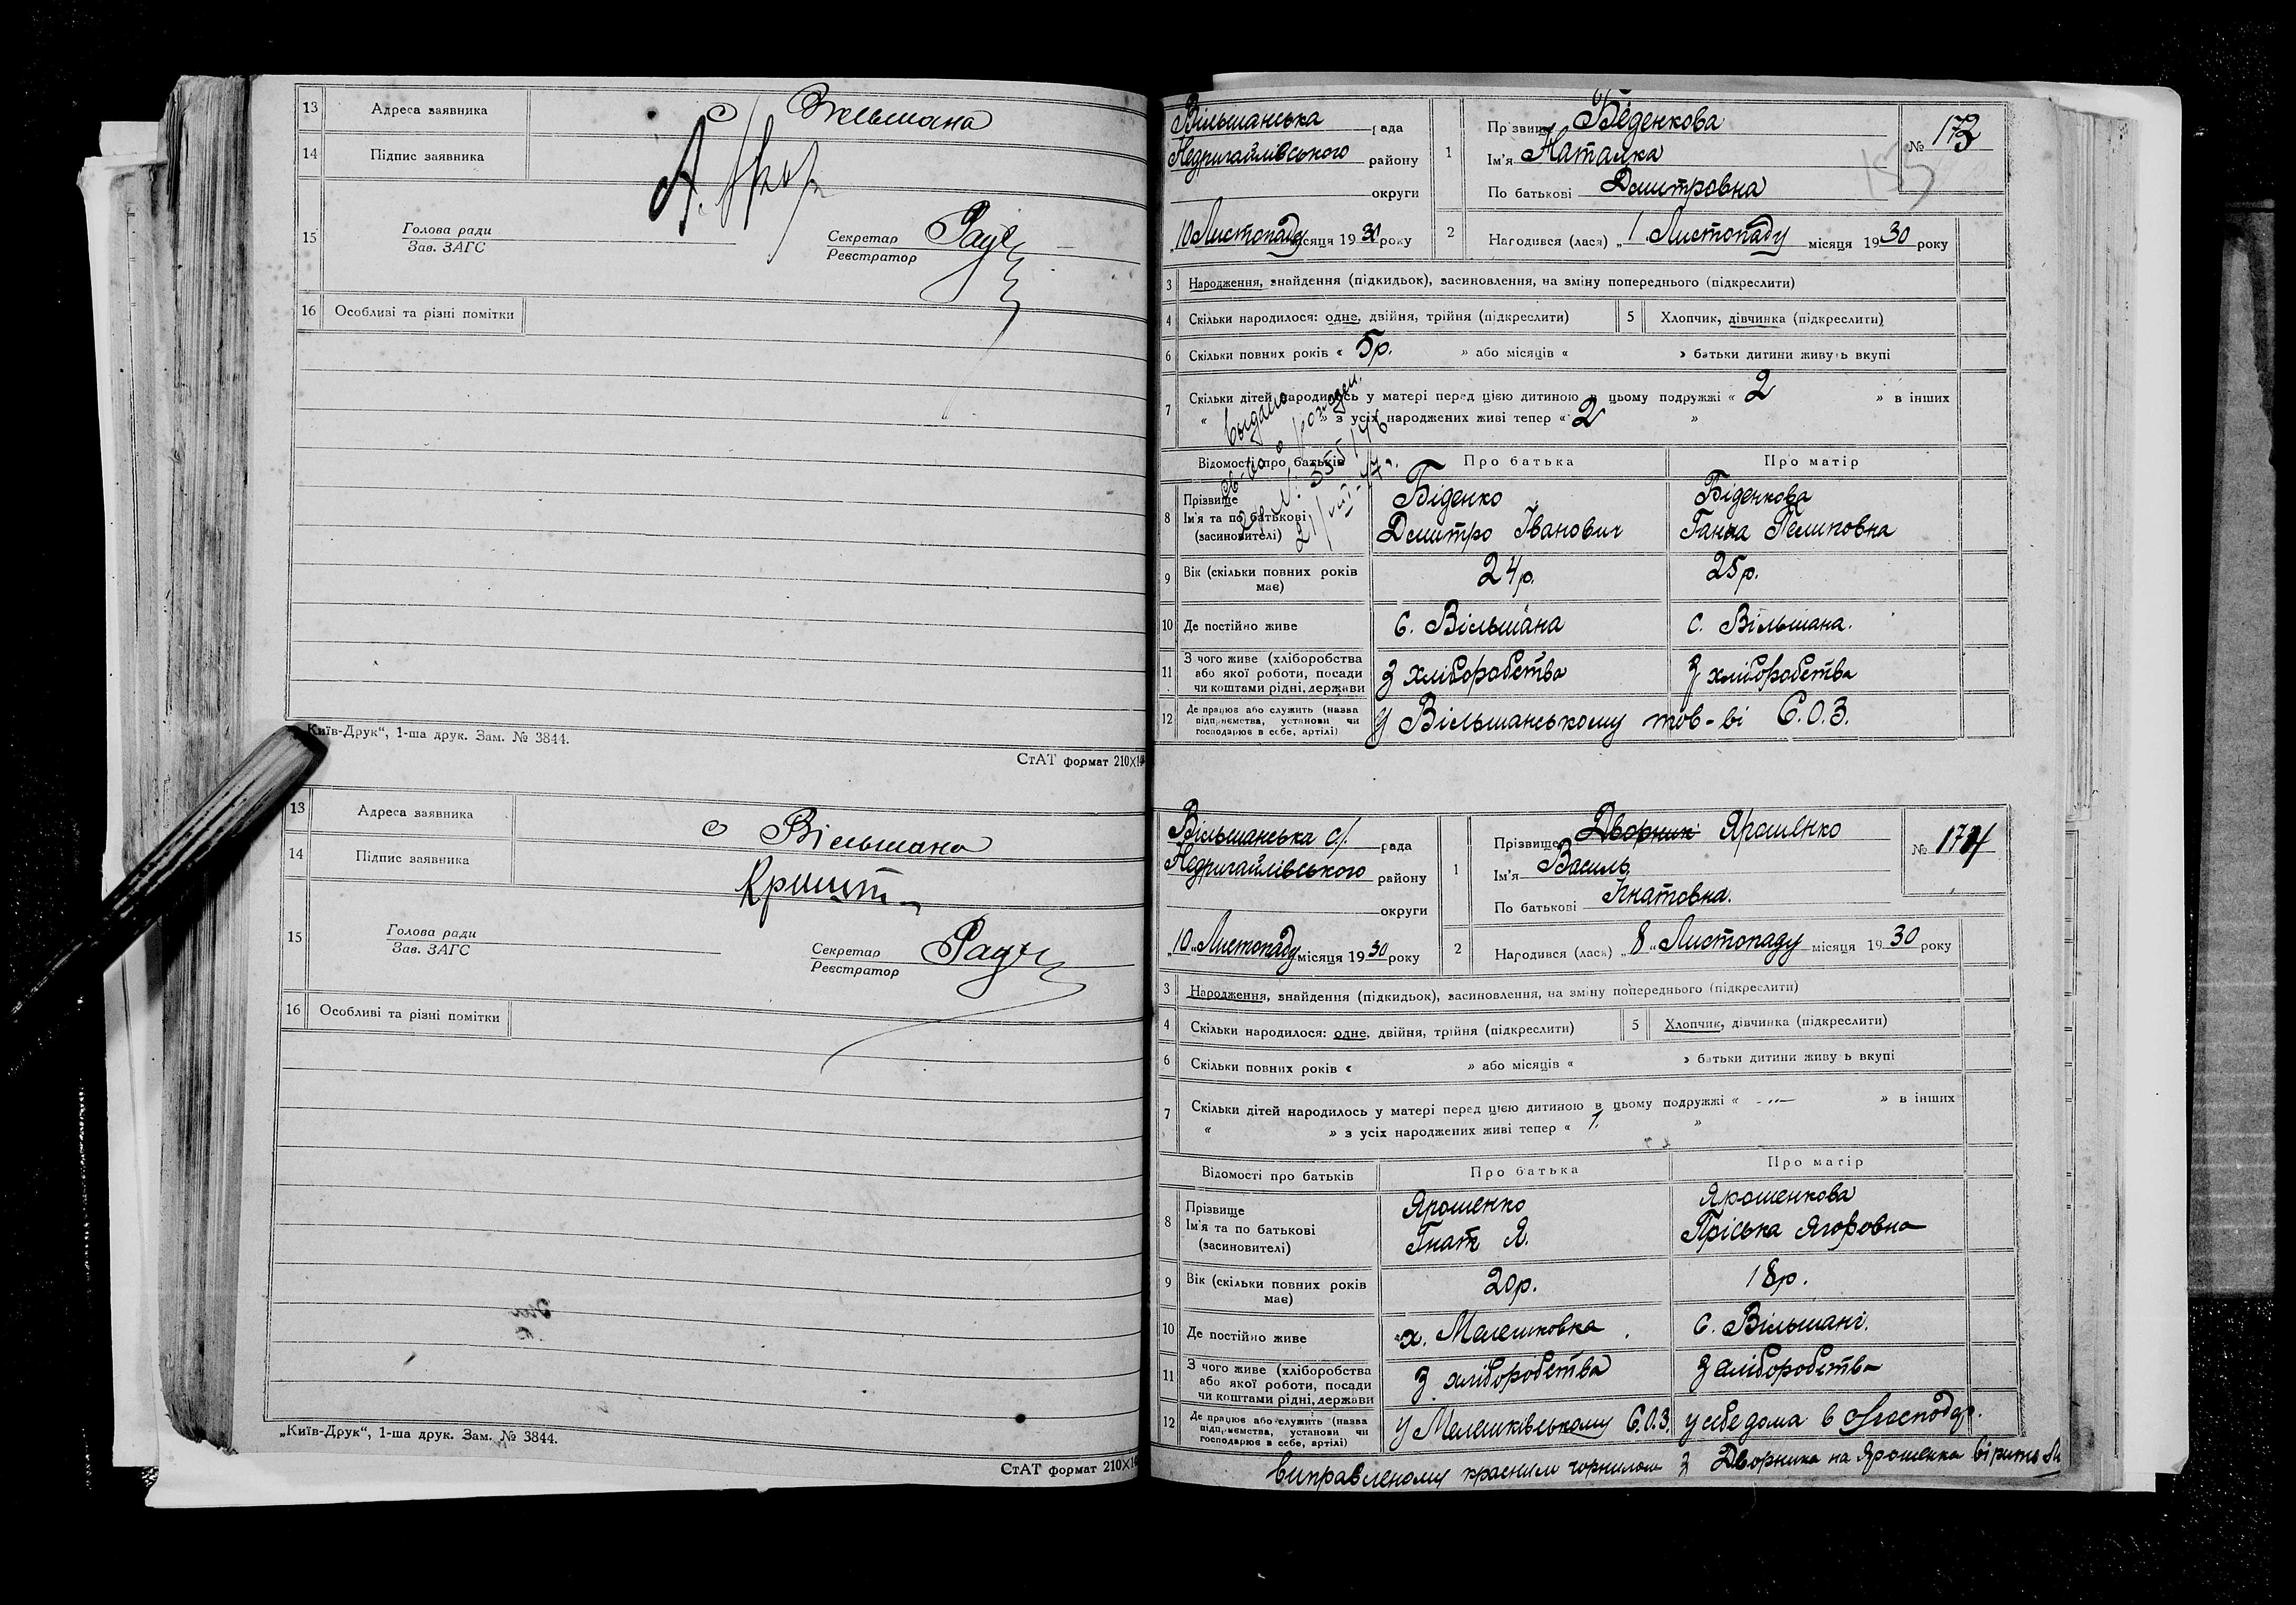 13 Адреса заявника с Вільшана
14 Підпис заявника
15 Голова ради
Зав. ЗАГС
Секретар
Реєстратор
16 Особливі та різні помітки
Київ-Друк“, 1-ша друк. Зам. № 3844.
СтАТ формат 210×14
13 Адреса заявника с Вільшана
14 Підпис заявника
15 Голова ради
Зав. ЗАГС
Секретар
Реєстратор
16 Особливі та різні помітки
„Київ-Друк“, 1-ша друк. Зам. № 3844.
СтАТ формат 210×14
Вільшанська рада
Недригайлівського району
округи
10 Листопаду місяця 1930 року
1 Прізвище Біденкова
Ім'я Наталка
По батькові Дмитровна
№ 173
2 Народився (лася) „1 Листопаду місяця 1930 року
3 Народження, знайдення (підкидьок), засиновлення, на зміну попереднього (підкреслити)
4 Скільки народилося: одне, двійня, трійня (підкреслити) 5 Хлопчик, дівчинка (підкреслити)
6 Скільки повних років « 5р. » або місяців « » батьки дитини живуть вкупі
7 Скільки дітей народилось у матері перед цією дитиною в цьому подружжі « 2 » в інших
« » з усіх народжених живі тепер « 2 »
Відомості про батьків Про батька Про матір
8 Прізвище Біденко Біденкова
Ім'я та по батькові Дмитро Іванович Ганна
(засиновителі)
9 Вік (скільки повних років має) 24р. 25р.
10 Де постійно живе с. Вільшана с. Вільшана.
11 З чого живе (хліборобства або якої роботи, посади чи коштами рідні, держави З хліборобства З хліборобства
12 Де працює або служить (назва підприємства, установи чи господарює в себе, артілі) У Вільшанському тов-ві С.О.З.
Вільшанська с/. рада
Недригайлівського району
округи
„10„ Листопаду місяця 1930 року
1 Прізвище Дворник Ярошенко
Ім'я Василь
По батькові Гнатовна.
№ 174
2 Народився (лася) „8„ Листопаду місяця 1930 року
3 Народження, знайдення (підкидьок), засиновлення, на зміну попереднього (підкреслити)
4 Скільки народилося: одне, двійня, трійня (підкреслити) 5 Хлопчик, дівчинка (підкреслити)
6 Скільки повних років « » або місяців « » батьки дитини живуть вкупі
7 Скільки дітей народилось у матері перед цією дитиною в цьому подружжі « -„- » в інших
« » з усіх народжених живі тепер « 1. »
Відомості про батьків Про батька Про матір
8 Прізвище Ярошенко Ярошенкова
Ім'я та по батькові Гнат Я. Пріська Ягоровна
(засиновителі)
9 Вік (скільки повних років має) 20р. 18р.
10 Де постійно живе х. Малешковка с. Вільшані.
11 З чого живе (хліборобства або якої роботи, посади чи коштами рідні, держави З хліборобства З хліборобства
12 Де працює або служить (назва підприємства, установи чи господарює в себе, артілі) У Малешківському С.О.З. у себе дома в господар.
Виправленому красним чорнилом з Дворника на Ярошенка вірить